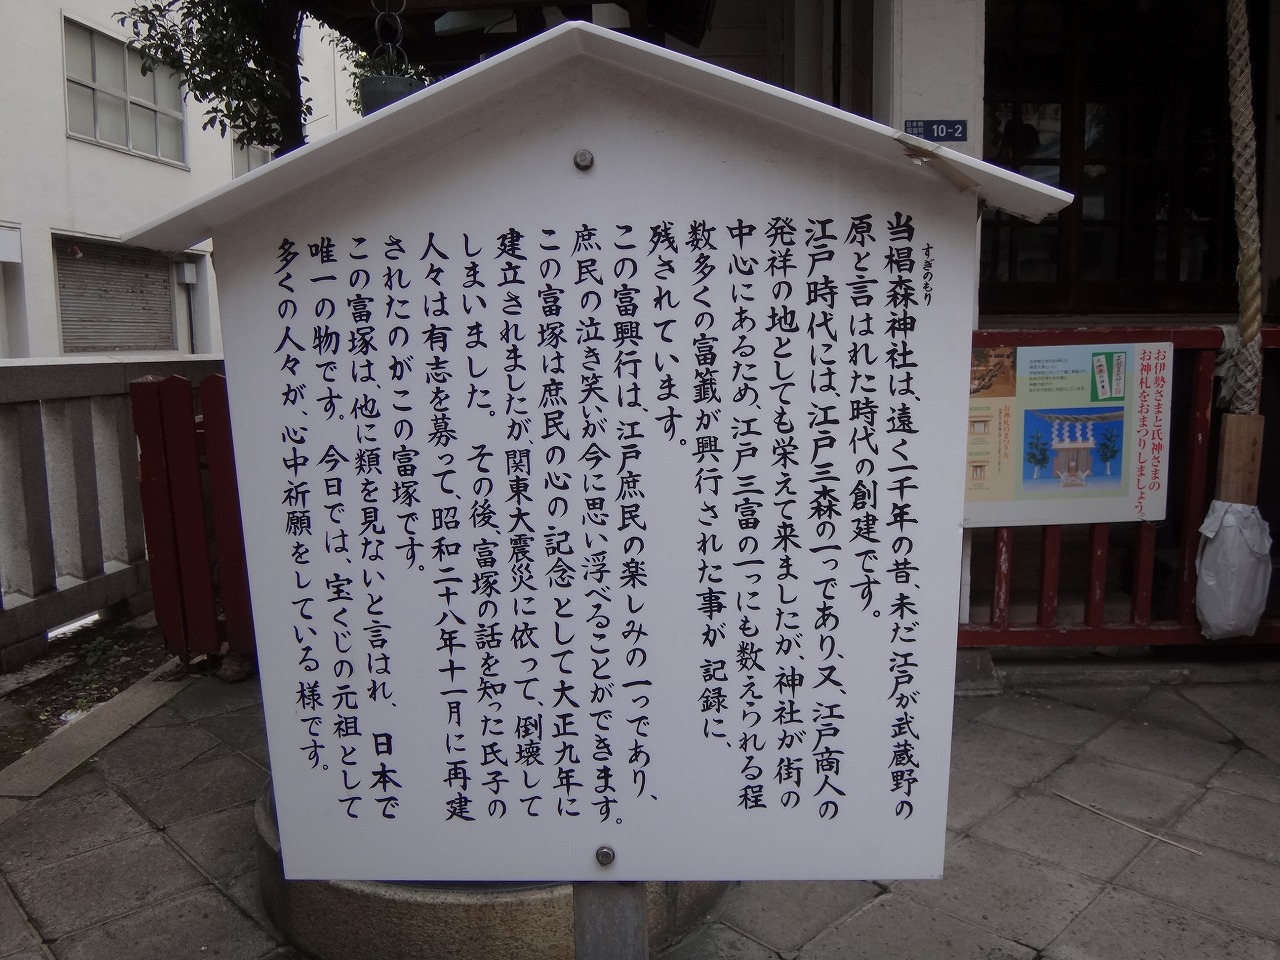 当椙森神社は、遠く一千年の昔、未だ江戸が武蔵野の
すぎのもり
原と言はれた時代の創建です。
江戸時代には、江戸三森の一つであり、又、江戸商人の
発祥の地としても栄えて来ましたが、神社が街の
中心にあるため、江戸三富の一つにも数えられる程
数多くの富籤が興行された事が記録に、
残されています。
この富興行は、江戸庶民の楽しみの一つであり、
庶民の泣き笑いが今に思い浮べることができます。
この富塚は庶民の心の記念として大正九年に
建立されましたが、関東大震災に依って、倒壊して
しまいました。その後、富塚の話を知った氏子の
人々は有志を募って、昭和二十八年十一月に再建
されたのがこの富塚です。
この富塚は、他に類を見ないと言はれ、日本で
唯一の物です。今日では、宝くじの元祖として
多くの人々が、心中祈願をしている様です。
10-2
お伊勢さまと氏神さまの
お神札をおまつりしましょう。
お神札のまつり方